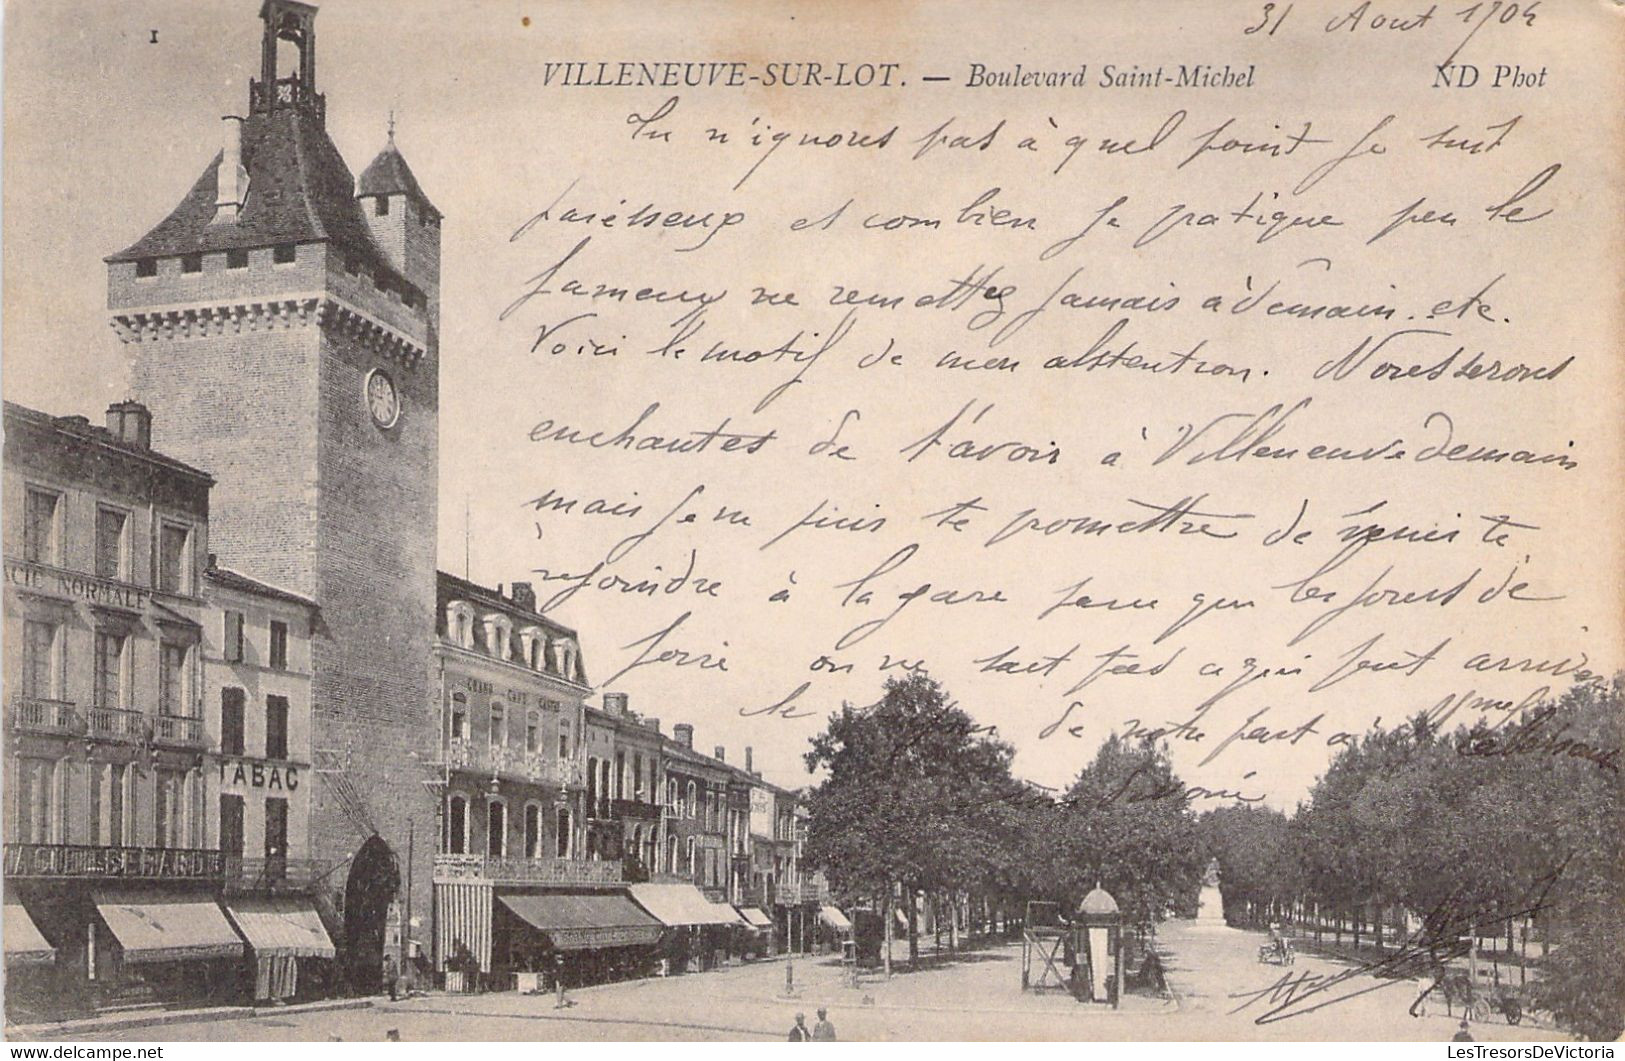 I
31 Aout 1904
VILLENEUVE-SUR-LOT. — Boulevard Saint-Michel
ND Phot
Tu n'ignores pas à quel point je suis
paresseux et combien je pratique peu le
fameux ne remettez jamais à demain. etc.
Voici le motif de mon abstention. Nous serons
enchantés de t'avoir à Villeneuve demain
mais je ne puis te promettre de venir te
rejoindre à la gare parce que les jours de
foire on ne sait pas ce qui peut arriver
de notre part à Mme
ton dévoué
NORMALE
TABAC
GRAND CAFÉ
LesTresorsDeVictoria
www.delcampe.net